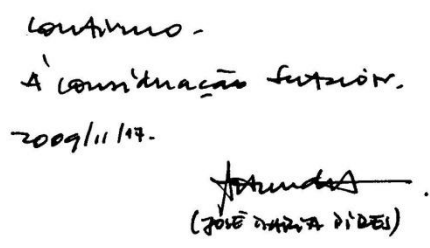 Confirmo.
À consideração Superior.
2009/11/17.
(JOSÉ MARIA PIRES)